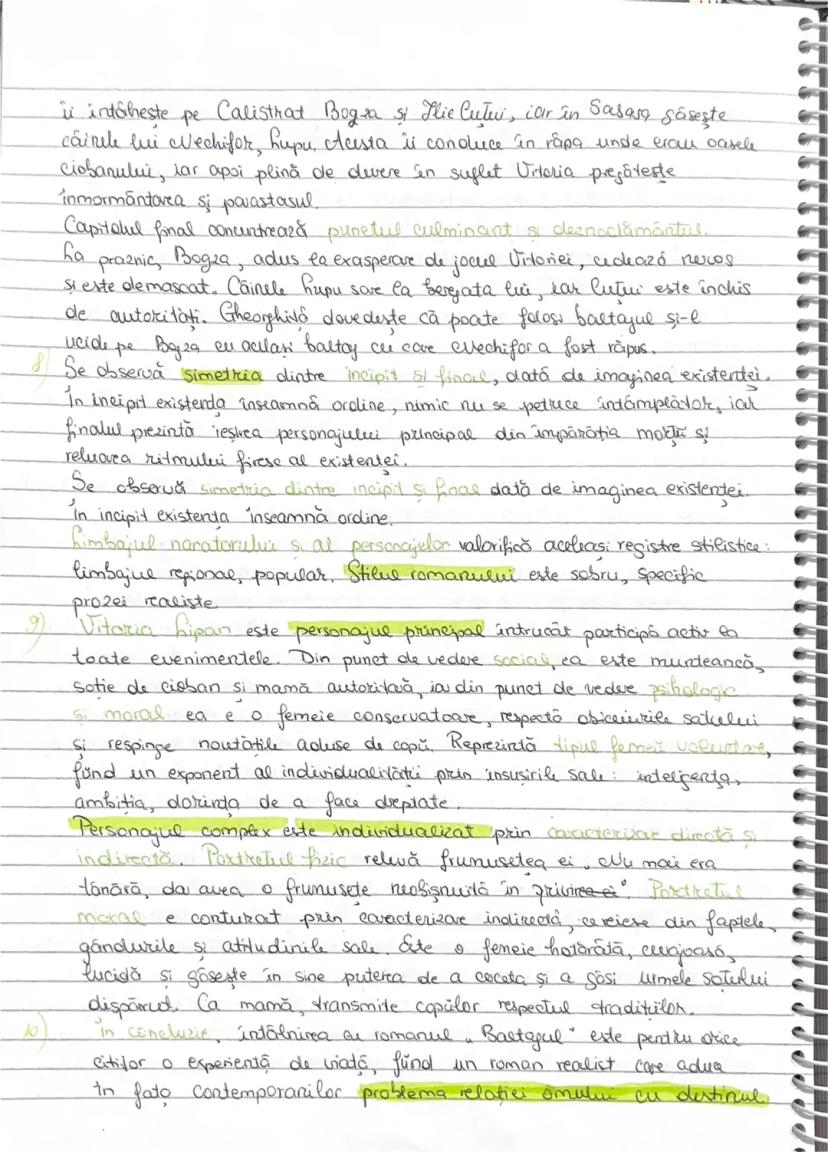 îi întâlnește pe Calistrat Bogza și Ilie Cuțui, iar în Sabasa găsește
câinele lui Nechifor, Lupu. Acesta îi conduce în râpa unde erau oasele
ciobanului, iar apoi plină de durere în suflet Vitoria pregătește
înmormântarea și parastasul.
Capitolul final concentrează punctul culminant și deznodământul.
La praznic, Bogza, adus la exasperare de jocul Vitoriei, cedează nervos
și este demascat. Câinele Lupu sare la beregata lui, iar Cuțui este închis
de autorități. Gheorghiță dovedește că poate folosi baltagul și-l
ucide pe Bogza cu același baltag cu care Nechifor a fost răpus.
8) Se observă simetria dintre incipit și final, dată de imaginea existenței.
În incipit existența înseamnă ordine, nimic nu se petrece întâmplător, iar
finalul prezintă ieșirea personajului principal din împărăția morții și
reluarea ritmului firesc al existenței.
Se observă simetria dintre incipit și final dată de imaginea existenței.
În incipit existența înseamnă ordine.
Limbajul naratorului și al personajelor valorifică aceleași registre stilistice:
limbajul regional, popular. Stilul romanului este sobru, specific
prozei realiste
9) Vitoria Lipan este personajul principal întrucât participă activ la
toate evenimentele. Din punct de vedere social, ea este munteancă,
soție de cioban și mamă autoritară, iar din punct de vedere psihologic
și moral ea e o femeie conservatoare, respectă obiceiurile satului
și respinge noutățile aduse de copii. Reprezintă tipul femeii voluntare,
fiind un exponent al individualității prin însușirile sale: inteligența,
ambiția, dorința de a face dreptate.
Personajul complex este individualizat prin caracterizare directă și
indirectă. Portretul fizic relevă frumusețea ei „Nu mai era
tânără, da avea o frumusețe neobișnuită în privire ei". Portretul
moral e conturat prin caracterizare indirectă, ce reiese din faptele,
gândurile și atitudinile sale. Este o femeie hotărâtă, curajoasă,
lucidă și găsește în sine puterea de a căuta și a găsi urmele soțului
dispărut. Ca mamă, transmite copiilor respectul tradițiilor.
10) În concluzie, întâlnirea cu romanul „Baltagul" este pentru orice
cititor o experiență de viață, fiind un roman realist care aduce
în fața contemporanilor problema relației omului cu destinul